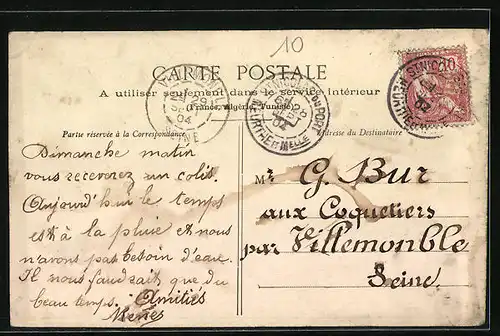 10
CARTE POSTALE
A utiliser seulement dans le service intérieur
(France, Algérie, Tunisie)
Partie réservée à la Correspondance
Adresse du Destinataire
Dimanche matin
vous recevrez un colis.
Aujourd'hui le temps
est à la pluie et nous
n'avons pas besoin d'eau.
Il nous faudrait que du
beau temps. Amitiés
Mr G. Bur
aux Coquetiers
par Villemonble
Seine.